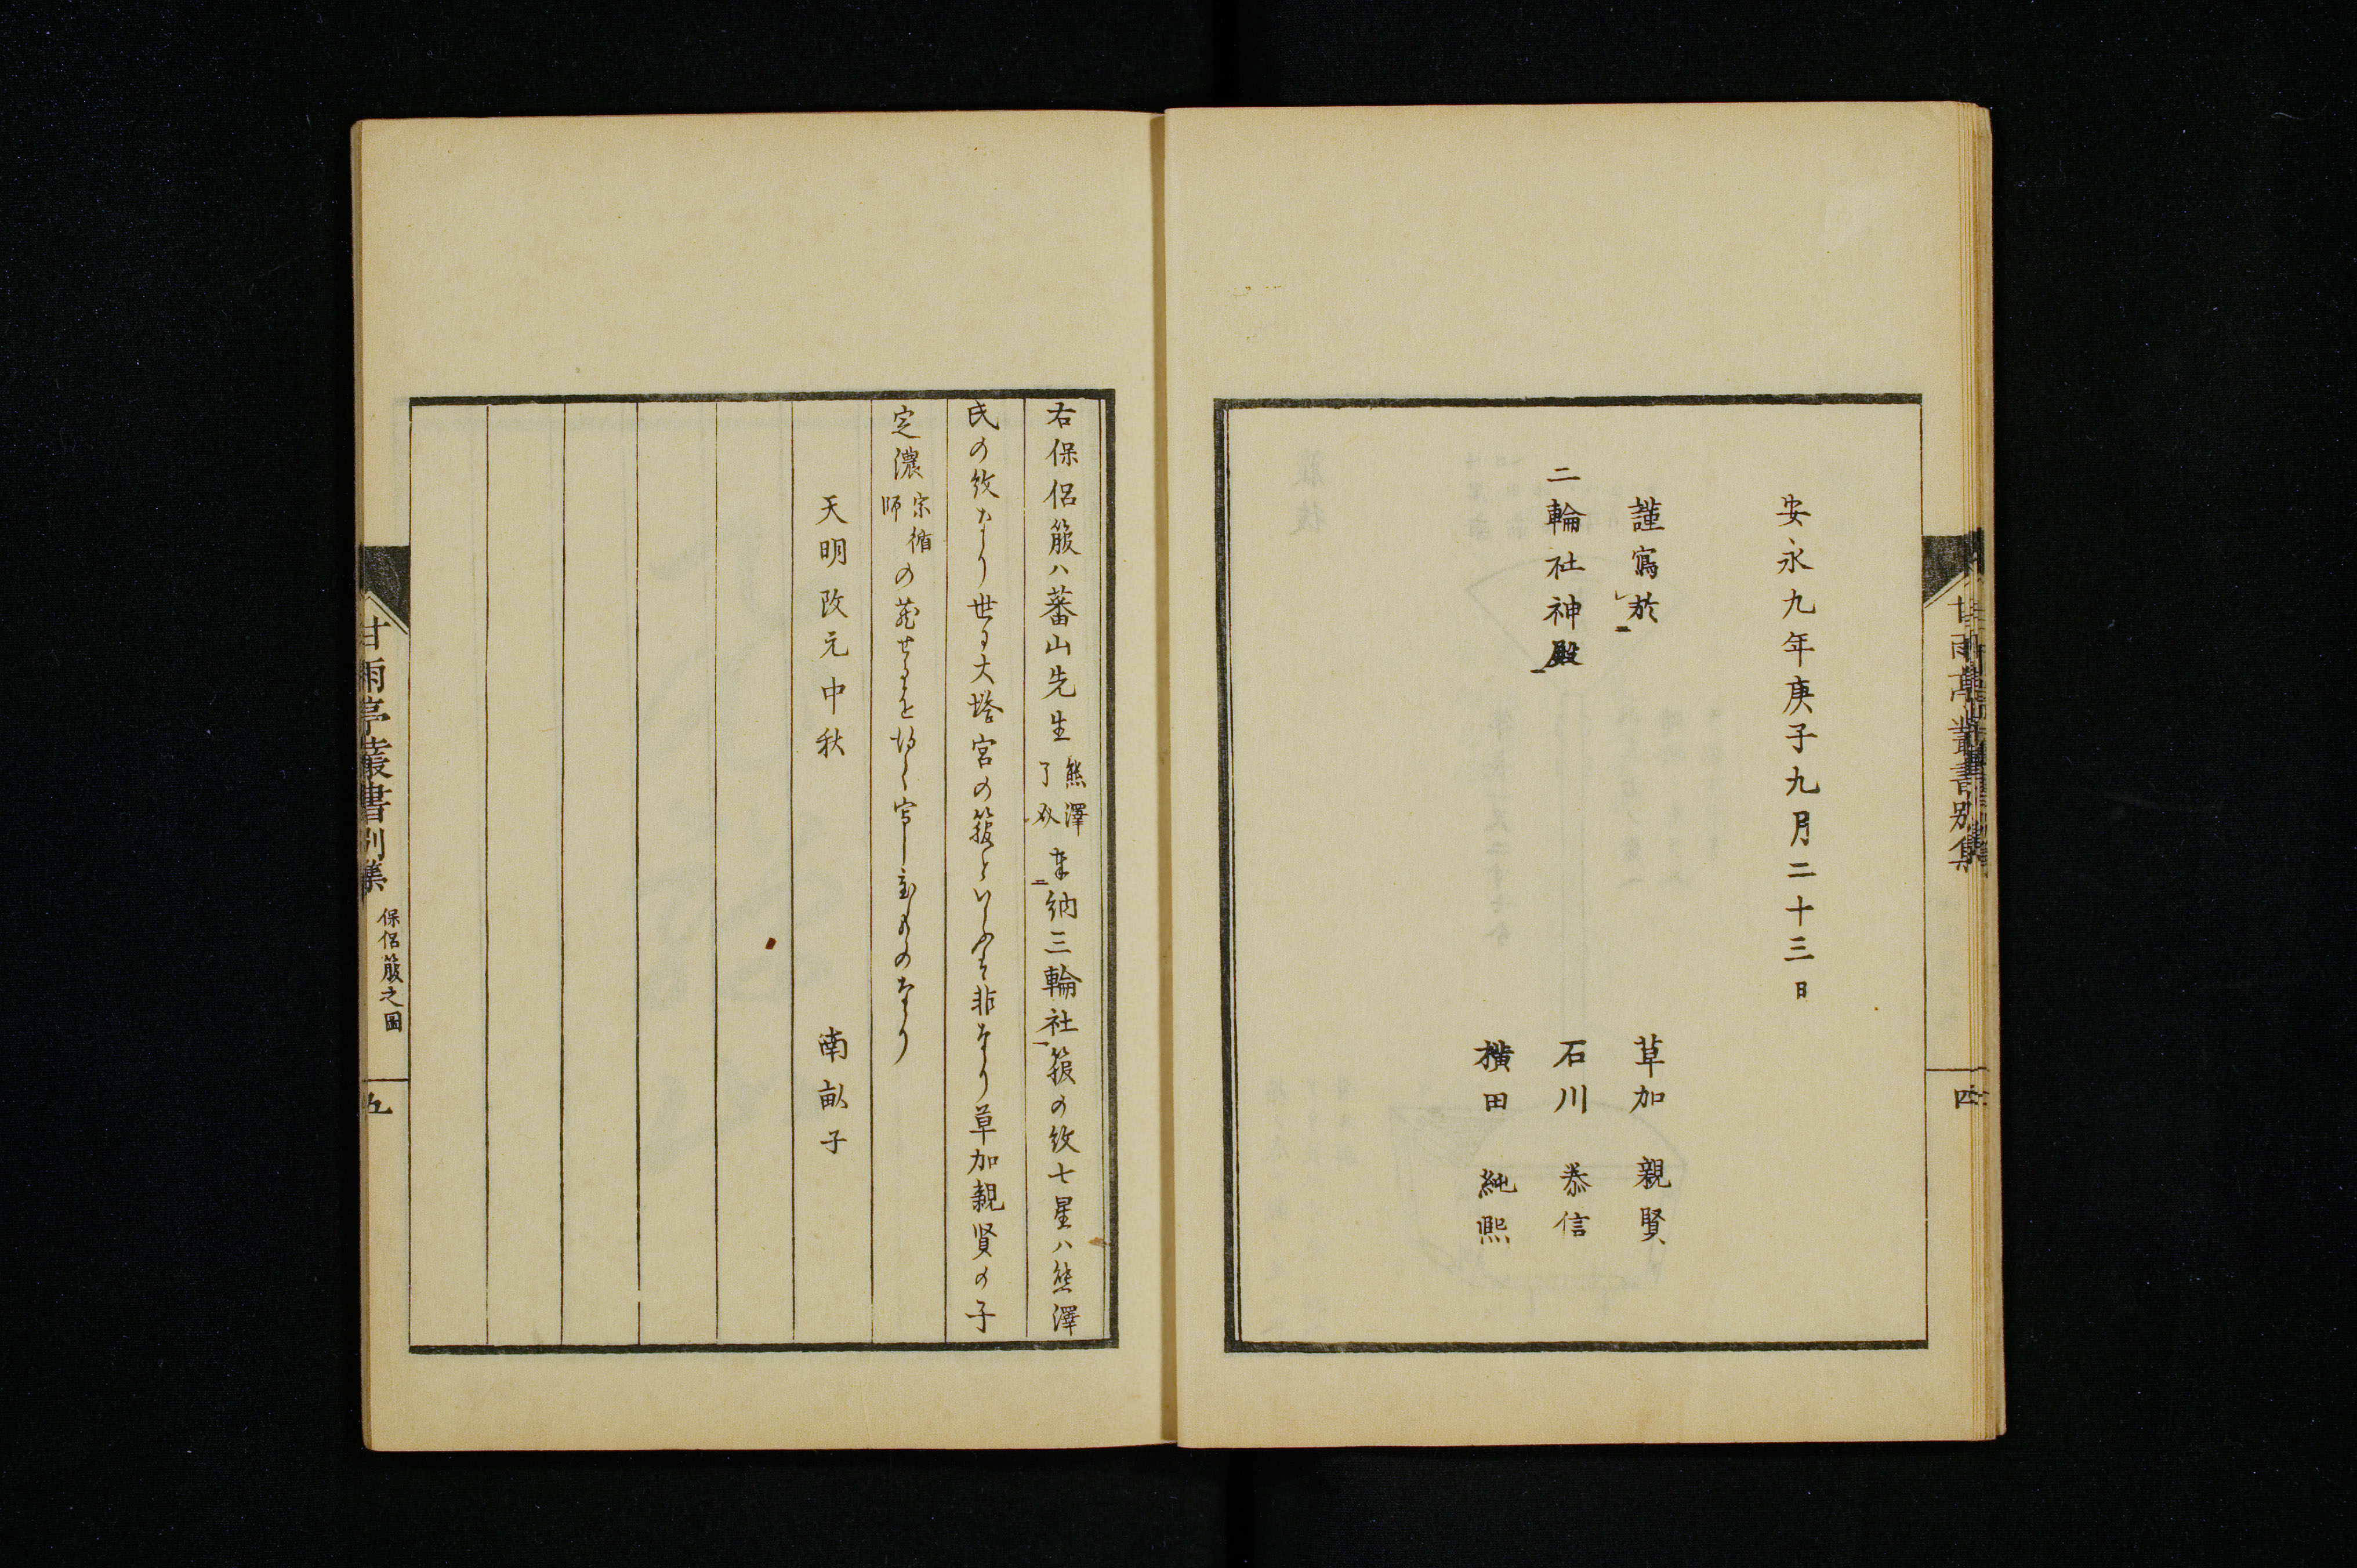 安永九年庚子九月二十三日
謹寫於
二輪社神殿
草加 親賢
石川 恭信
橫田 純熙
甘雨亭叢書別集
四
右保侶箙ハ蕃山先生熊澤了奉納三輪社箙の紋七星ハ熊澤
氏の紋なり世に大塔宮の箙といふは非なり草加親賢の子
定濃宗循師の蔵せるを乞得て写し置ものなり
天明改元中秋
南畝子
甘雨亭叢書別集 保侶箙之圖
五